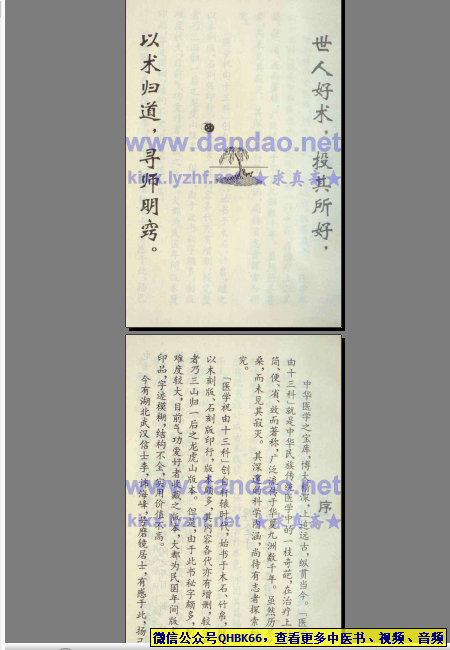 世人好术，投其所好，
以术归道，寻师明窍。
www.dandao.net
kixx.lyzhf.net ★求真斋★
序
中华医学之宝库，博大精深，上迄远古，纵贯当今。「医
由十三科」就是中华民族传统医学中的一枝奇葩，在治疗上
简、便、省、效而著称，广泛流传于华夏九洲数千年。虽然历
桑，而未见其寂灭。其深邃的科学内涵，尚待有志者探索
究。
「医学祝由十三科」创于轩辕时代，始书于木石、竹帛，
以木刻版、石刻版印行，版本颇多，其内容各代亦有增删，较
者乃三山归一后之龙虎山版本。但是，由于此书秘字颇多，
难度较大，目前气功爱好者收藏之版本，大都为民国年间版
印品，字迹模糊，结构不全，实用价值不高。
今有湖北武汉信士李
海峰，号磨镜居士，有感于此，扬己
www.dandao.net
kixx.lyzhf.net ★求真斋★
微信公众号QHBK66，查看更多中医书、视频、音频